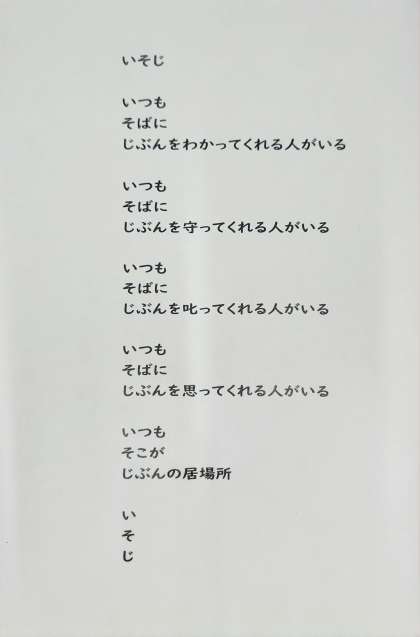 いそじ
いつも
そばに
じぶんをわかってくれる人がいる
いつも
そばに
じぶんを守ってくれる人がいる
いつも
そばに
じぶんを叱ってくれる人がいる
いつも
そばに
じぶんを思ってくれる人がいる
いつも
そこが
じぶんの居場所
い
そ
じ